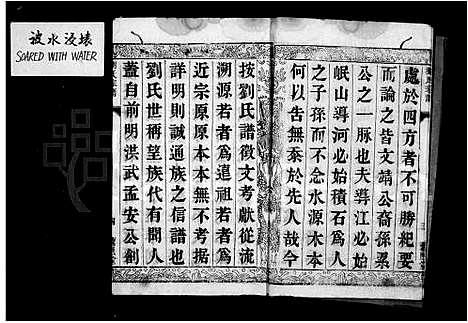 被水浸壞
SOAKED WITH WATER
處於四方者不可勝紀要
而論之皆文靖公裔孫累
公之一脉也夫導江必始
岷山導河必始積石爲人
之子孫而不念水源木本
何以告無忝於先人哉今
按劉氏譜徵文考獻從流
溯源若者爲遠祖若者爲
近宗原原本本無不考據
詳明則誠通族之信譜也
劉氏世稱望族代有聞人
蓋自前明洪武孟安公創